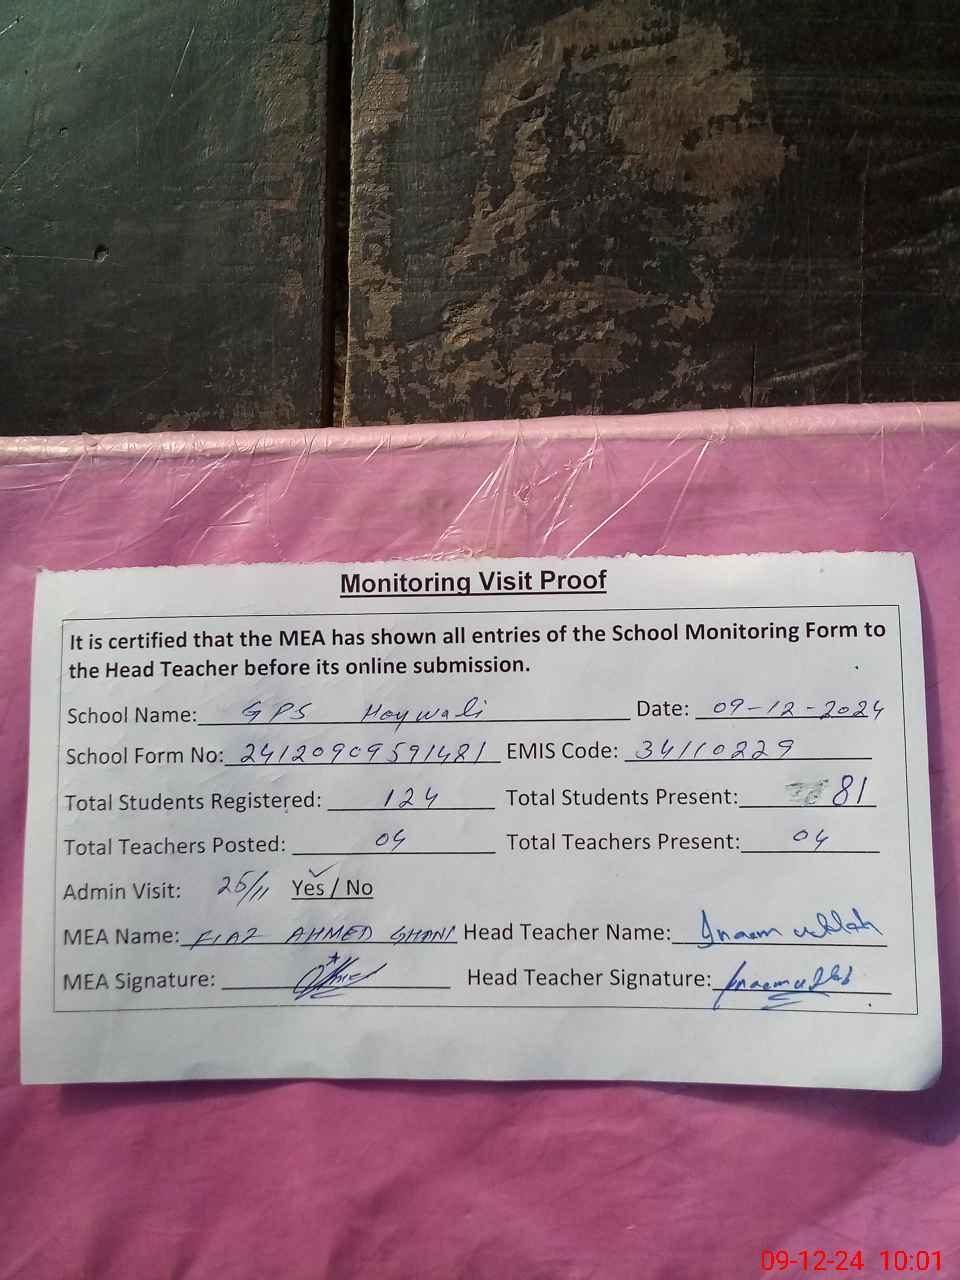 Monitoring Visit Proof
It is certified that the MEA has shown all entries of the School Monitoring Form to
the Head Teacher before its online submission.
School Name: GPS Hoywali Date: 09-12-2024
School Form No: 24120909591481 EMIS Code: 34110229
Total Students Registered: 124 Total Students Present: 81
Total Teachers Posted: 04 Total Teachers Present: 04
Admin Visit: 25/11 Yes / No
MEA Name: FIAZ AHMED GHANI Head Teacher Name: Inaam ullah
MEA Signature: Head Teacher Signature: Inaamullah
09-12-24 10:01